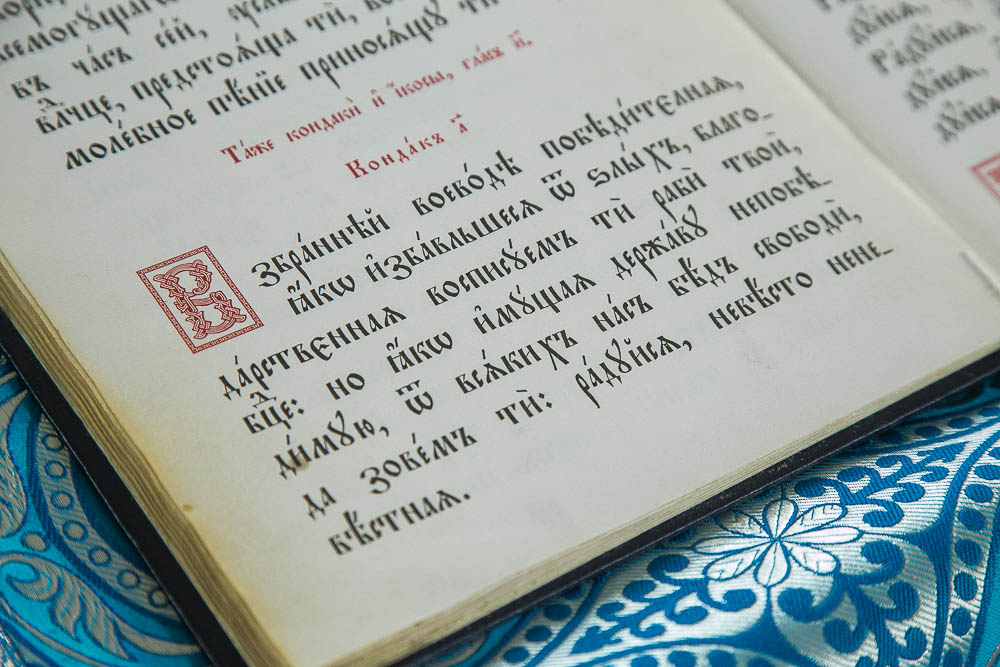 въ ча́съ се́й,
вл҃чце, предстоѧ́ща тѝ,
моле́бное пѣ́нїе приносѧ́щꙋ тѝ
Та́же кондакѝ и҆ і҆́косы, гла́съ и҃,
Конда́къ а҃
Взбра́ннѣй воево́дѣ побѣди́телнаѧ,
ꙗ҆́кѡ и҆зба́вльшесѧ ѿ ѕлы́хъ, благо-
да́рственнаѧ восписꙋ́емъ тѝ рабѝ твоѝ,
бц҃е: но ꙗ҆́кѡ и҆мꙋ́щаѧ держа́вꙋ непобѣ-
ди́мꙋю, ѿ всѧ́кихъ на́съ бѣ́дъ свободѝ,
да зове́мъ тѝ: ра́дꙋйсѧ, невѣ́сто нене-
вѣ́стнаѧ.
Ра́дꙋйсѧ,